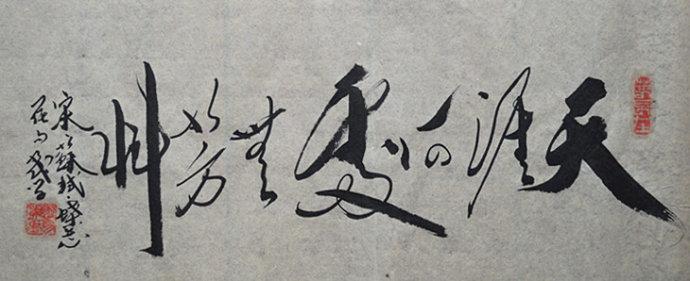 天涯何處無芳艸
宋蘇軾蝶恋
花句